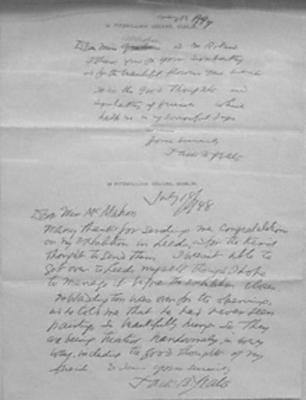 18 FITZWILLIAM SQUARE, DUBLIN.
May
Dear Miss
thank you for your sympathy
for the beautiful flowers
the Good Thoughts and
sympathy of friends which
help me in my sorrowful days
yours sincerely
Jack B Yeats
18 FITZWILLIAM SQUARE, DUBLIN.
July 18
1948
Dear Miss McMahon
Many thanks for sending me congratulations
on my Exhibition in Leeds, for the kind
thought to send them. I wasn't able to
get over to Leeds myself though I hope
to manage it before the exhibition closes
was over for the opening,
told me that he had never seen
paintings so beautifully hung. So they
are being treated handsomely in every
way, including the good thoughts of my
friends
yours sincerely
Jack B Yeats